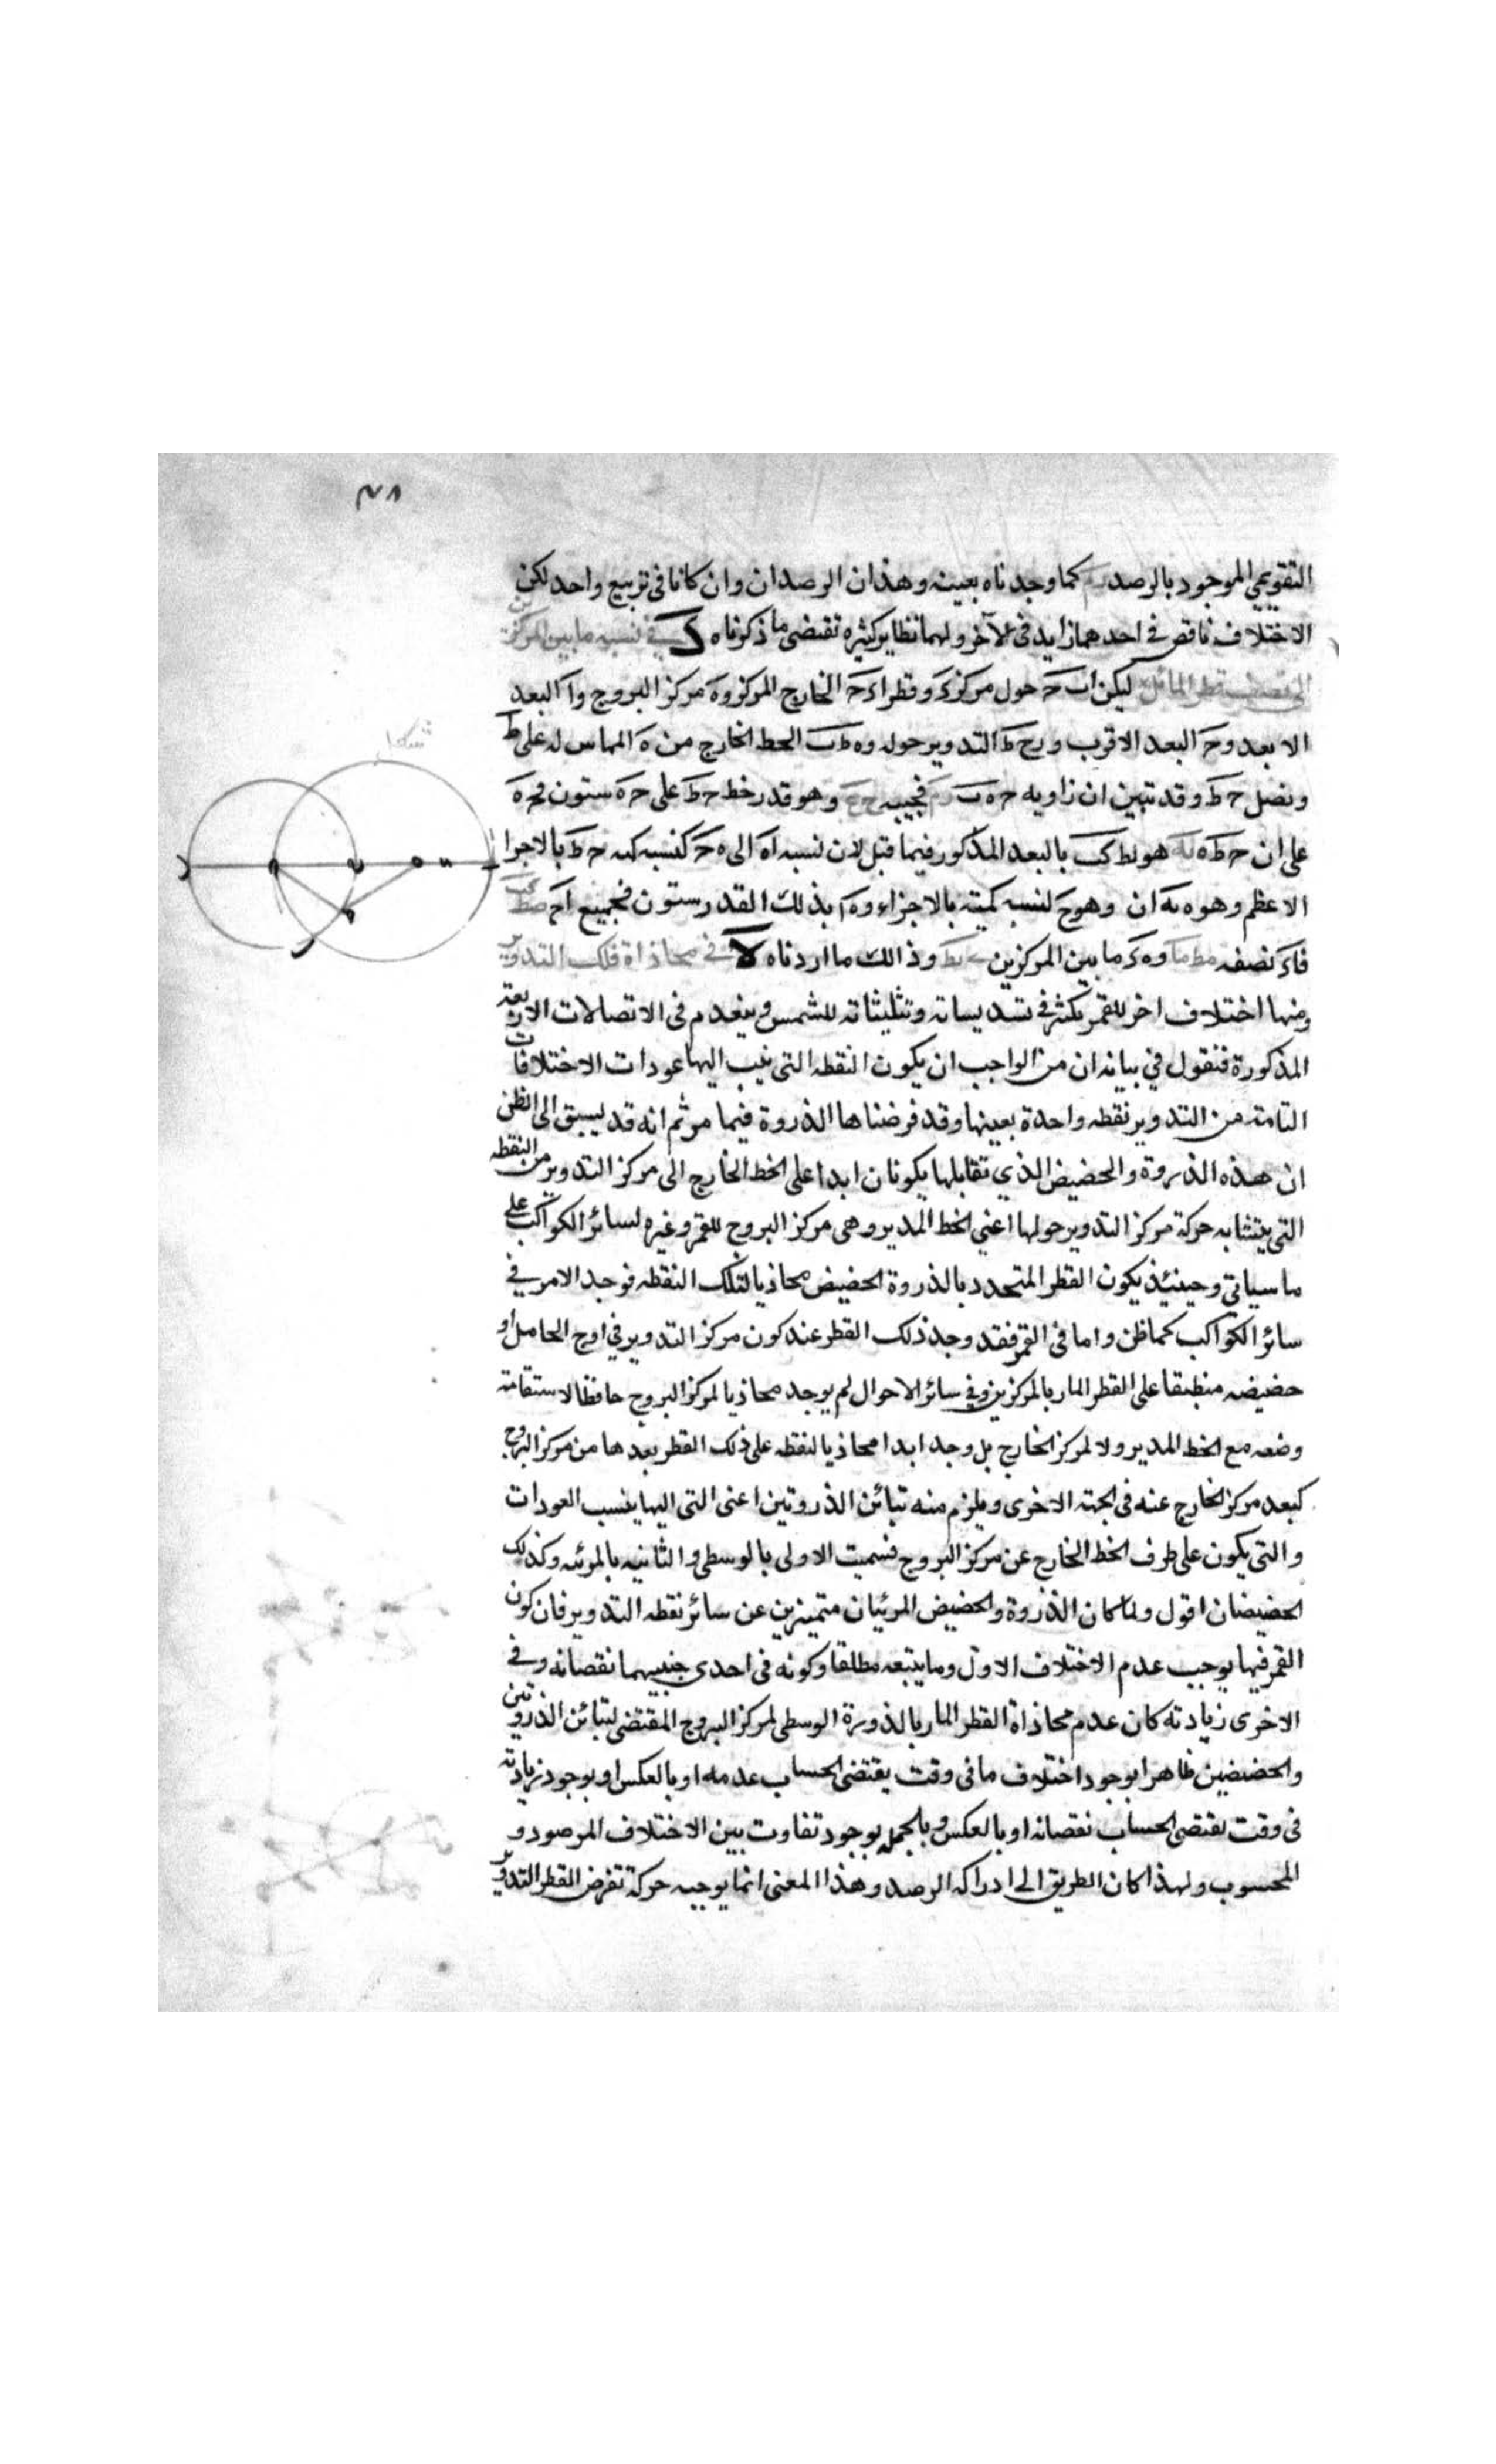 ٤٨
التقويمي الموجود بالرصد كما وجدناه بعينه وهذان الرصدان وان كانا في تربيع واحد لكن
الاختلاف ناقص في احدهما زايد في الآخر ولهما نظاير كثيره تقتضى ما ذكرناه ك في نسبه ما بين المركزين
الى نصف قطر المائل ليكن اب ح حول مركز د وقطر ا د ح الخارج المركز و ه مركز البروج و ا البعد
الابعد و ح البعد الاقرب و التدوير حوله و ه ط ب الخط الخارج من ه المماس له على ط
ونصل ح ط وقد تبين ان زاويه ح ه ب فجيبه وهو قدر خط ح ط على ح ه ستون فح ه
على ان ح ط ه هو لط كب بالبعد المذكور فيما قبل لان نسبه ا ه الى ه ح كنسبه ح ط بالاجزا
الاعظم وهو وهو ح لنسبه بالاجزاء و ه ا بذلك القدر ستون فجميع ا ح
فا د نصفه مط ما و ه د ما بين المركزين ى يط وذالك ما اردناه لا في محاذاة فلك التدوير
ومنها اختلاف اخر للقمر يكثر في تسديساته وتثليثاته للشمس وينعدم فى الاتصالات الاربعة
المذكورة فنقول في بيانه ان من الواجب ان يكون النقطه التى ينسب اليها عودات الاختلافات
التامة من التدوير نقطه واحدة بعينها وقد فرضناها الذروة فيما مر ثم انه قد يسبق الى الظن
ان هذه الذروة والحضيض الذي تقابلها يكونان ابدا على الخط الخارج الى مركز التدوير من النقطه
التى يتشابه حركة مركز التدوير حولها اعني الخط المدير وهى مركز البروج للقمر وغيره لسائر الكواكب على
ما سياتي وحينئذ يكون القطر المتحدد بالذروة الحضيض محاذيا لتلك النقطه فوجد الامر في
سائر الكواكب كما ظن واما في القمر فقد وجد ذلك القطر عند كون مركز التدوير في اوج الحامل او
حضيضه منطبقا على القطر المار بالمركزين وفي سائر الاحوال لم يوجد محاذيا لمركز البروج حافظا لاستقامة
وضعه مع الخط المدير ولا لمركز الخارج بل وجد ابدا محاذيا لنقطه على ذلك القطر بعدها من مركز البروج
كبعد مركز الخارج عنه في الجهة الاخرى ويلزم منه تبائن الذروتين اعنى التى اليها ينسب العودات
والتى يكون على طرف الخط الخارج عن مركز البروج فسميت الاولى بالوسطى والثانيه بالمرئيه وكذلك
الحضيضان اقول ولما كان الذروة والحضيض المرئيان متميزين عن سائر نقطه التدوير فان كون
القمر فيها يوجب عدم الاختلاف الاول وما يتبعه مطلقا وكونه فى احدى جنبيهما نقصانه وفي
الاخرى زيادته كان عدم محاذاة القطر المار بالذورة الوسطى لمركز البروج المقتضى لتبائن الذروتين
والحضيضين ظاهرا بوجود اختلاف ما فى وقت يقتضى الحساب عدمه او بالعكس او بوجود زيادته
فى وقت يقتضى الحساب نقصانه او بالعكس وبالجمله بوجود تفاوت بين الاختلاف المرصود و
المحسوب ولهذا كان الطريق الى ادراكه الرصد وهذا المعنى انما يوجبه حركة تفرض القطر التدوير
شكل